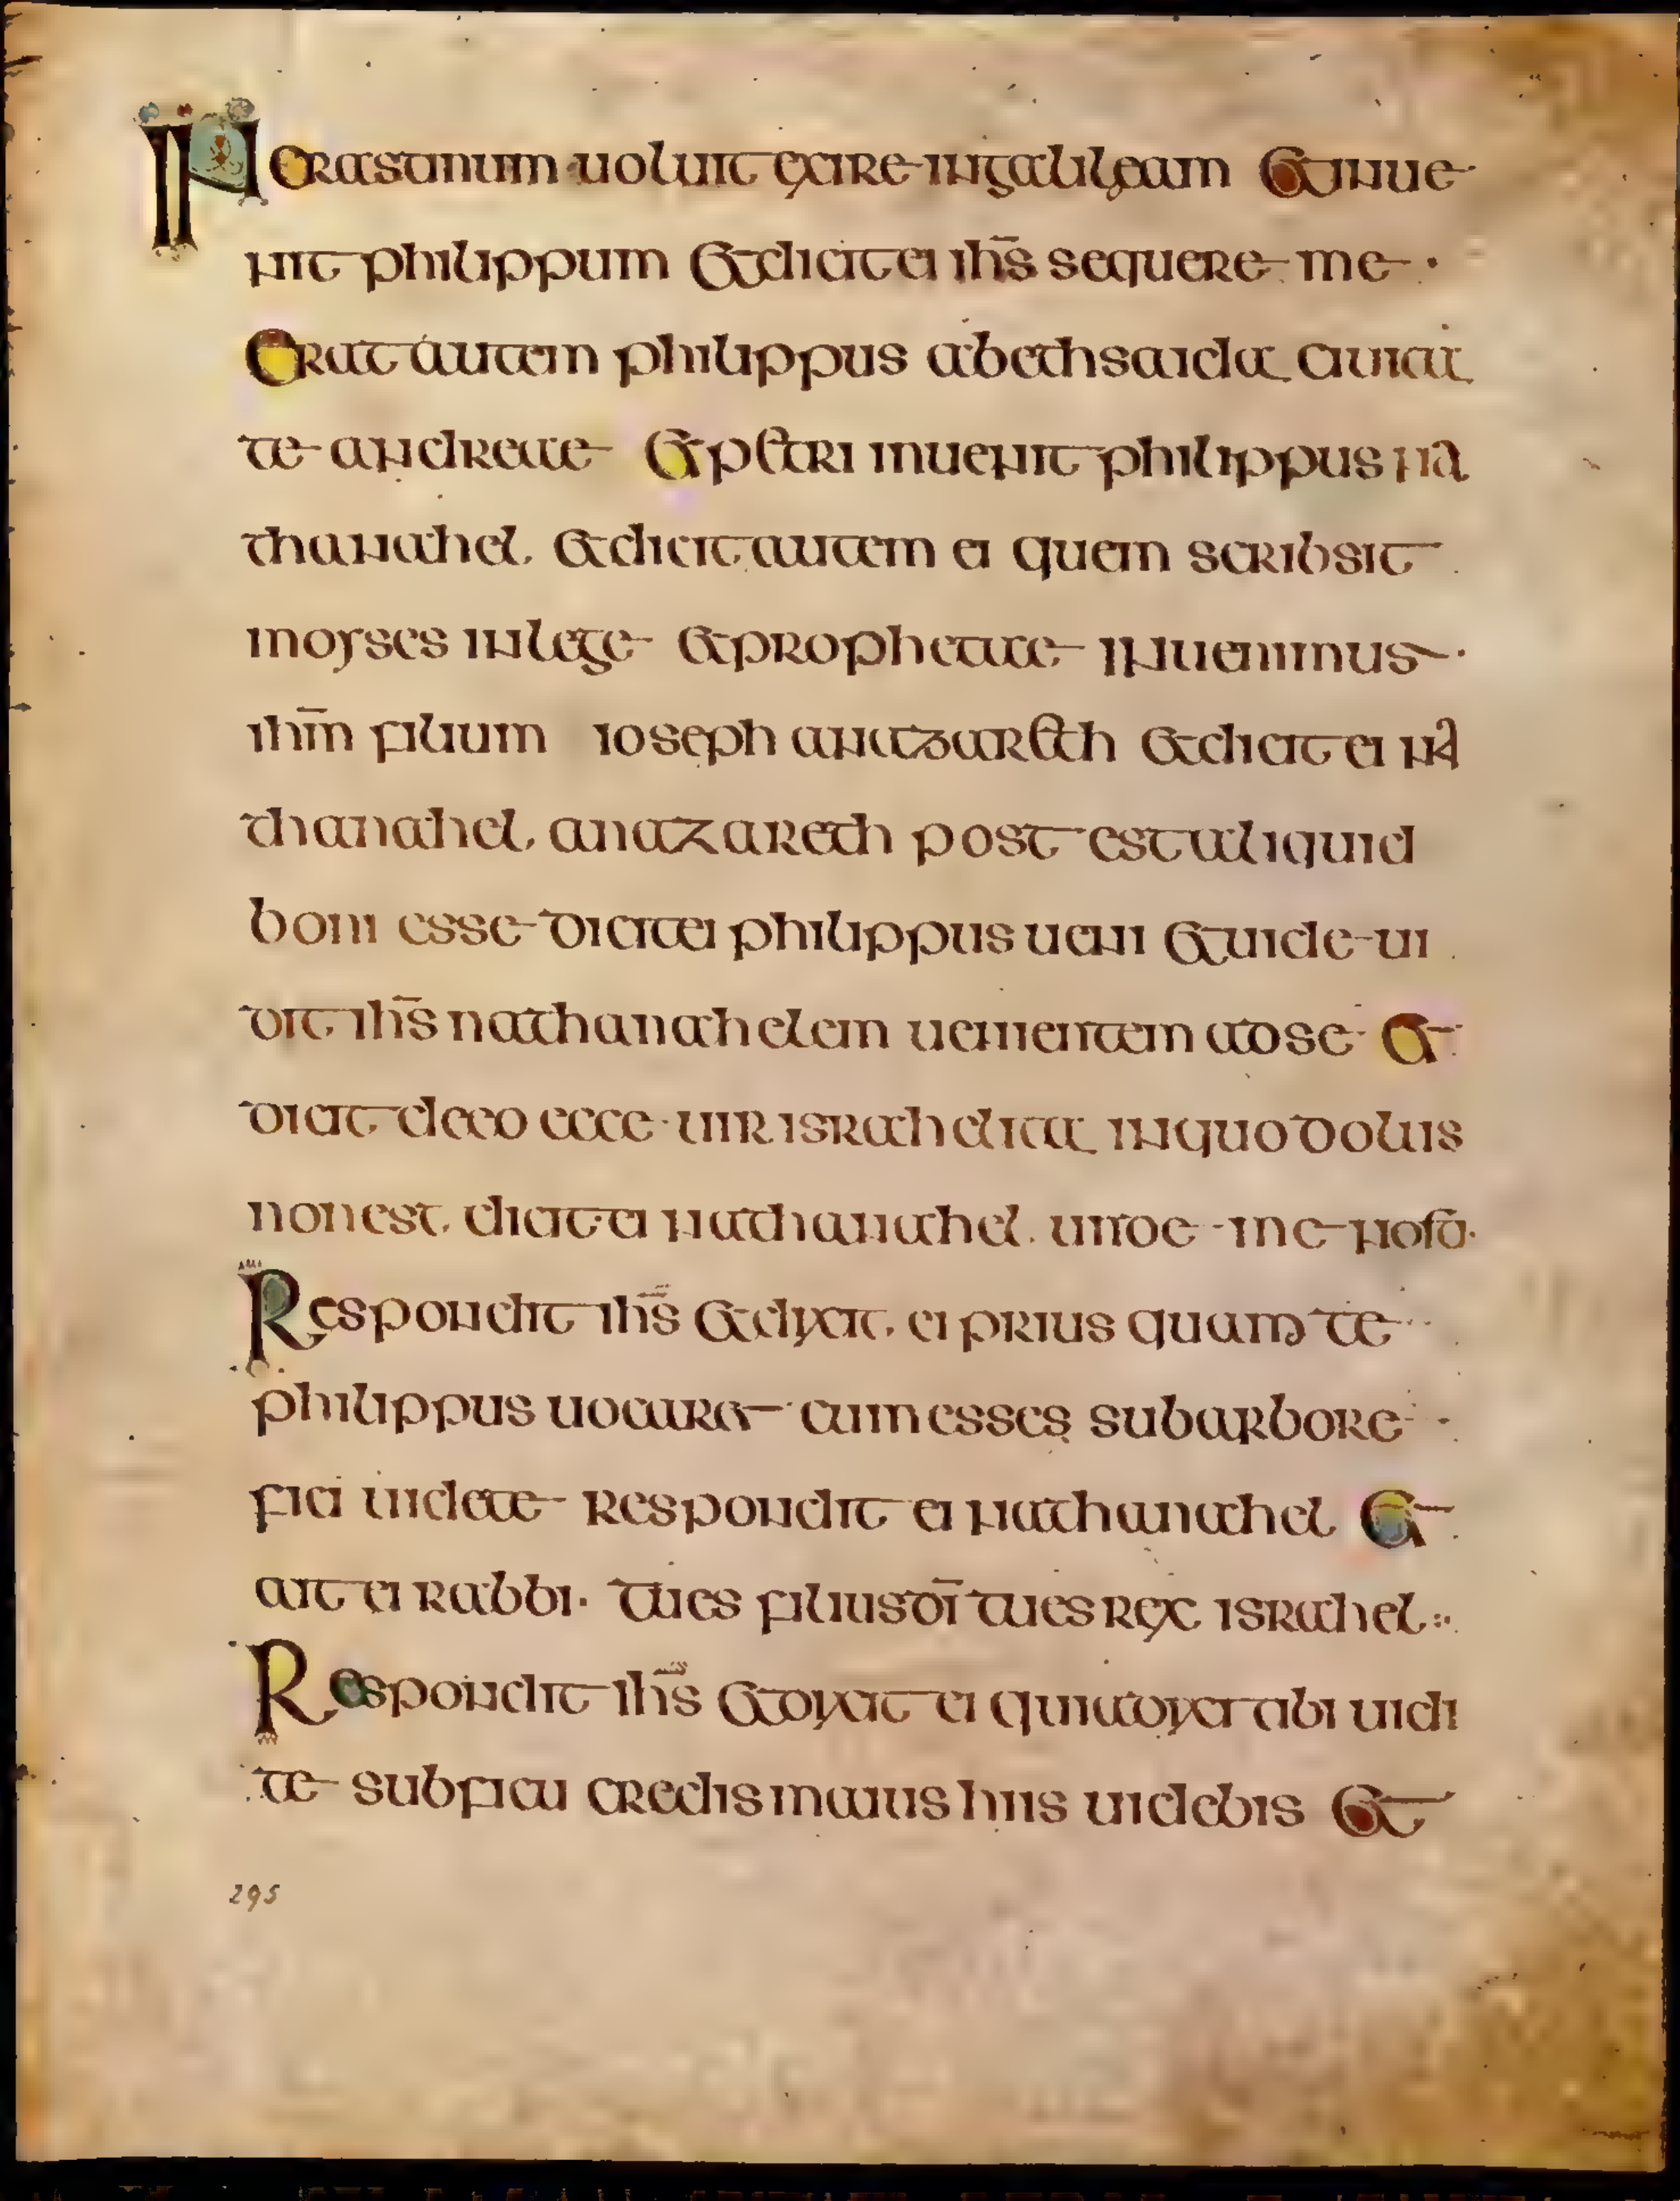 In crastinum uoluit exire in galileam Et inue
nit philippum et dicit ei ihs̄ sequere me ·
Erat autem philippus a bethsaida ciuita
te andreae Et petri inuenit philippus na
thanahel. et dicit autem ei quem scribsit
moyses in lege et prophetae inuenimus ·
ihm̄ filium ioseph a nazareth et dicit ei na
thanahel. a nazareth potest est aliquid
boni esse dicit ei philippus ueni et uide ui
dit ihs̄ nathanahelem uenientem ad se Et
dicit de eo ecce uir israhelita in quo dolus
non est. dicit ei nathanahel. unde me nosti ·
Respondit ihs̄ et dixit. ei prius quam te
philippus uocaret cum esses sub arbore
fici uidete respondit ei nathanahel Et
ait ei rabbi · tu es filius dī tu es rex israhel :·
Respondit ihs̄ et dixit ei quia dixi tibi uidi
te sub ficu credis maius hiis uidebis Et
295